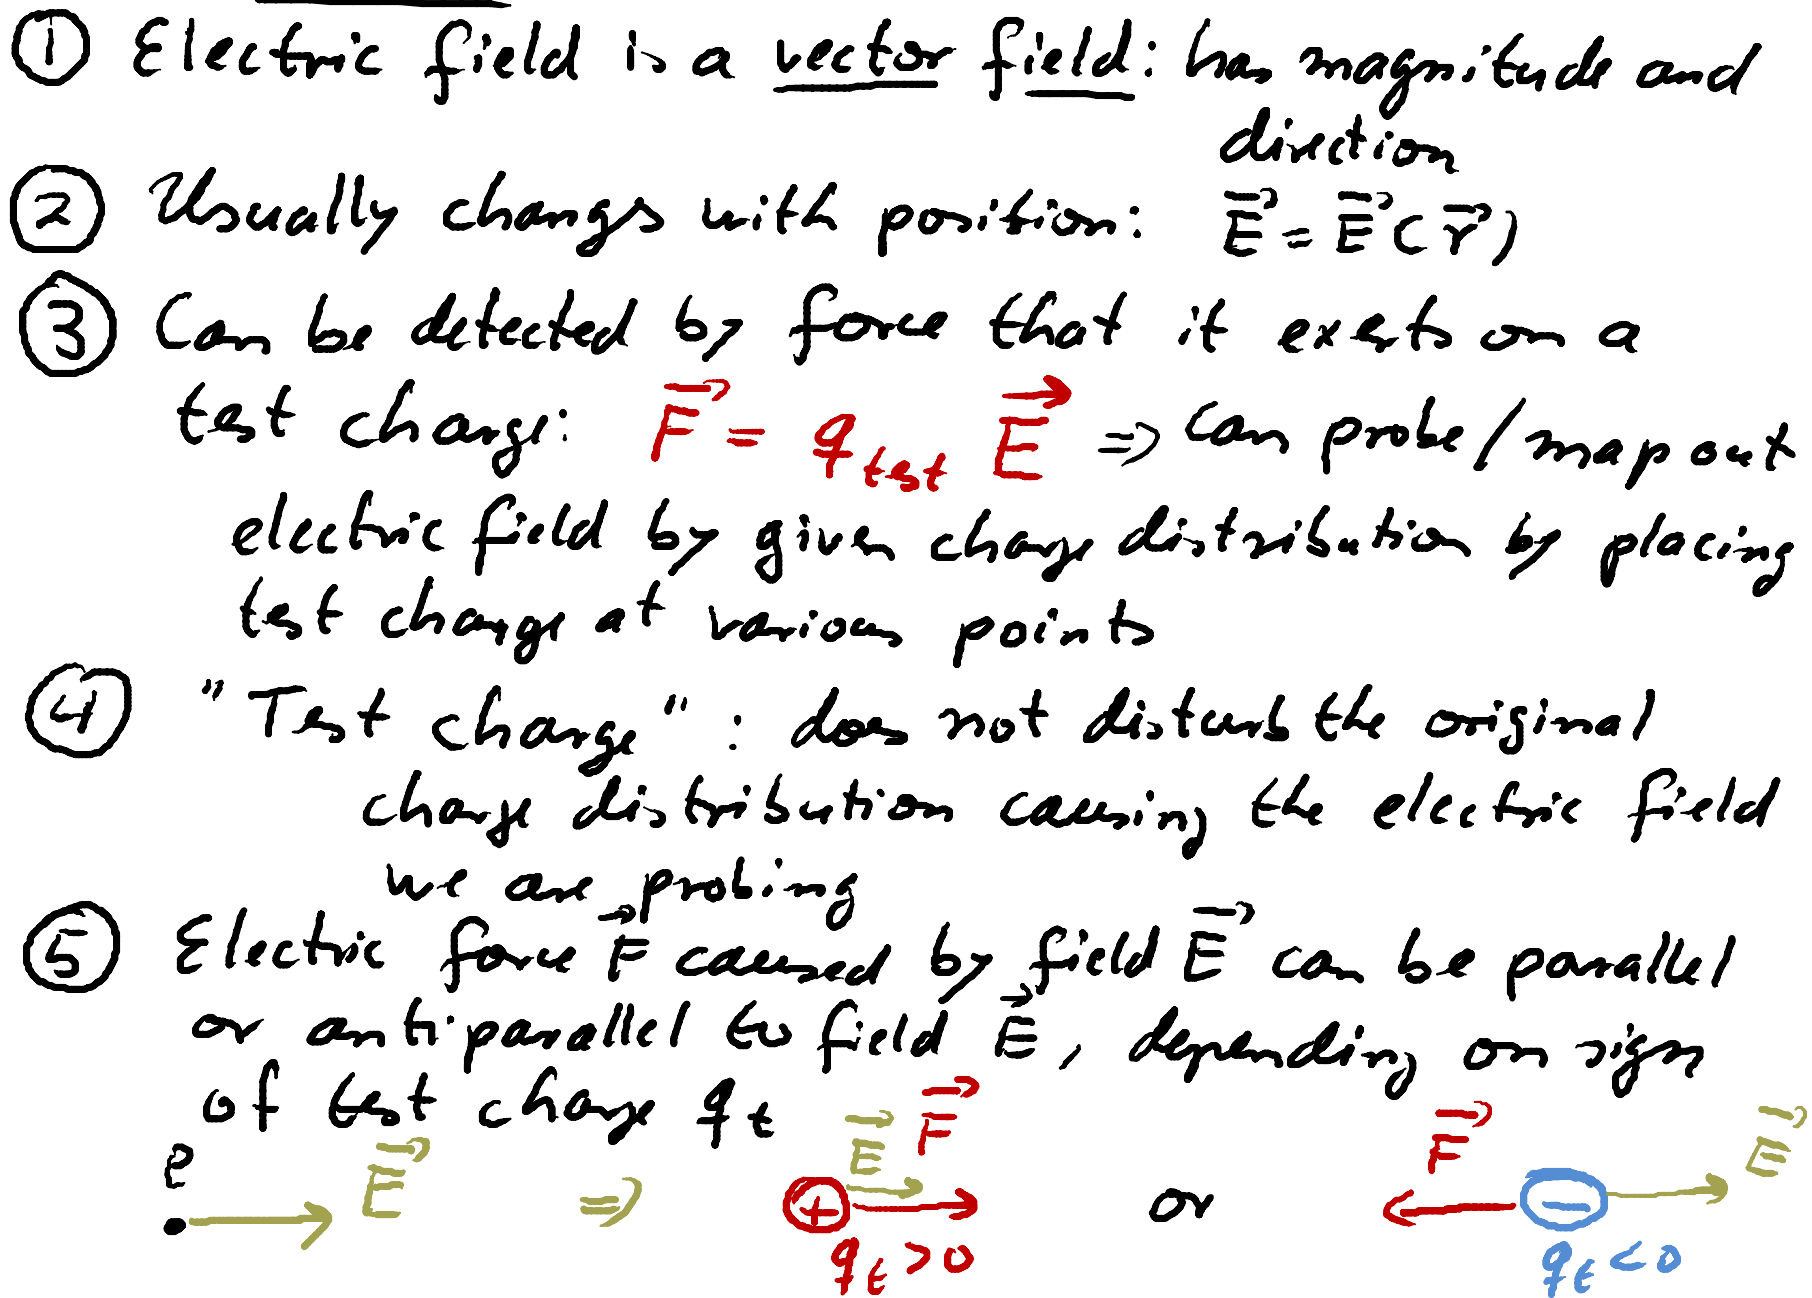 ① Electric field is a vector field: has magnitude and
direction
② Usually changes with position: E⃗ = E⃗(r⃗)
③ Can be detected by force that it exerts on a
test charge: F⃗ = q_test E⃗ ⇒ can probe/map out
electric field by given charge distribution by placing
test charge at various points
④ "Test charge": does not disturb the original
charge distribution causing the electric field
we are probing
⑤ Electric force F⃗ caused by field E⃗ can be parallel
or antiparallel to field E⃗, depending on sign
of test charge q_t
P E⃗ ⇒ + E⃗ F⃗ or F⃗ − E⃗
q_t > 0 q_t < 0